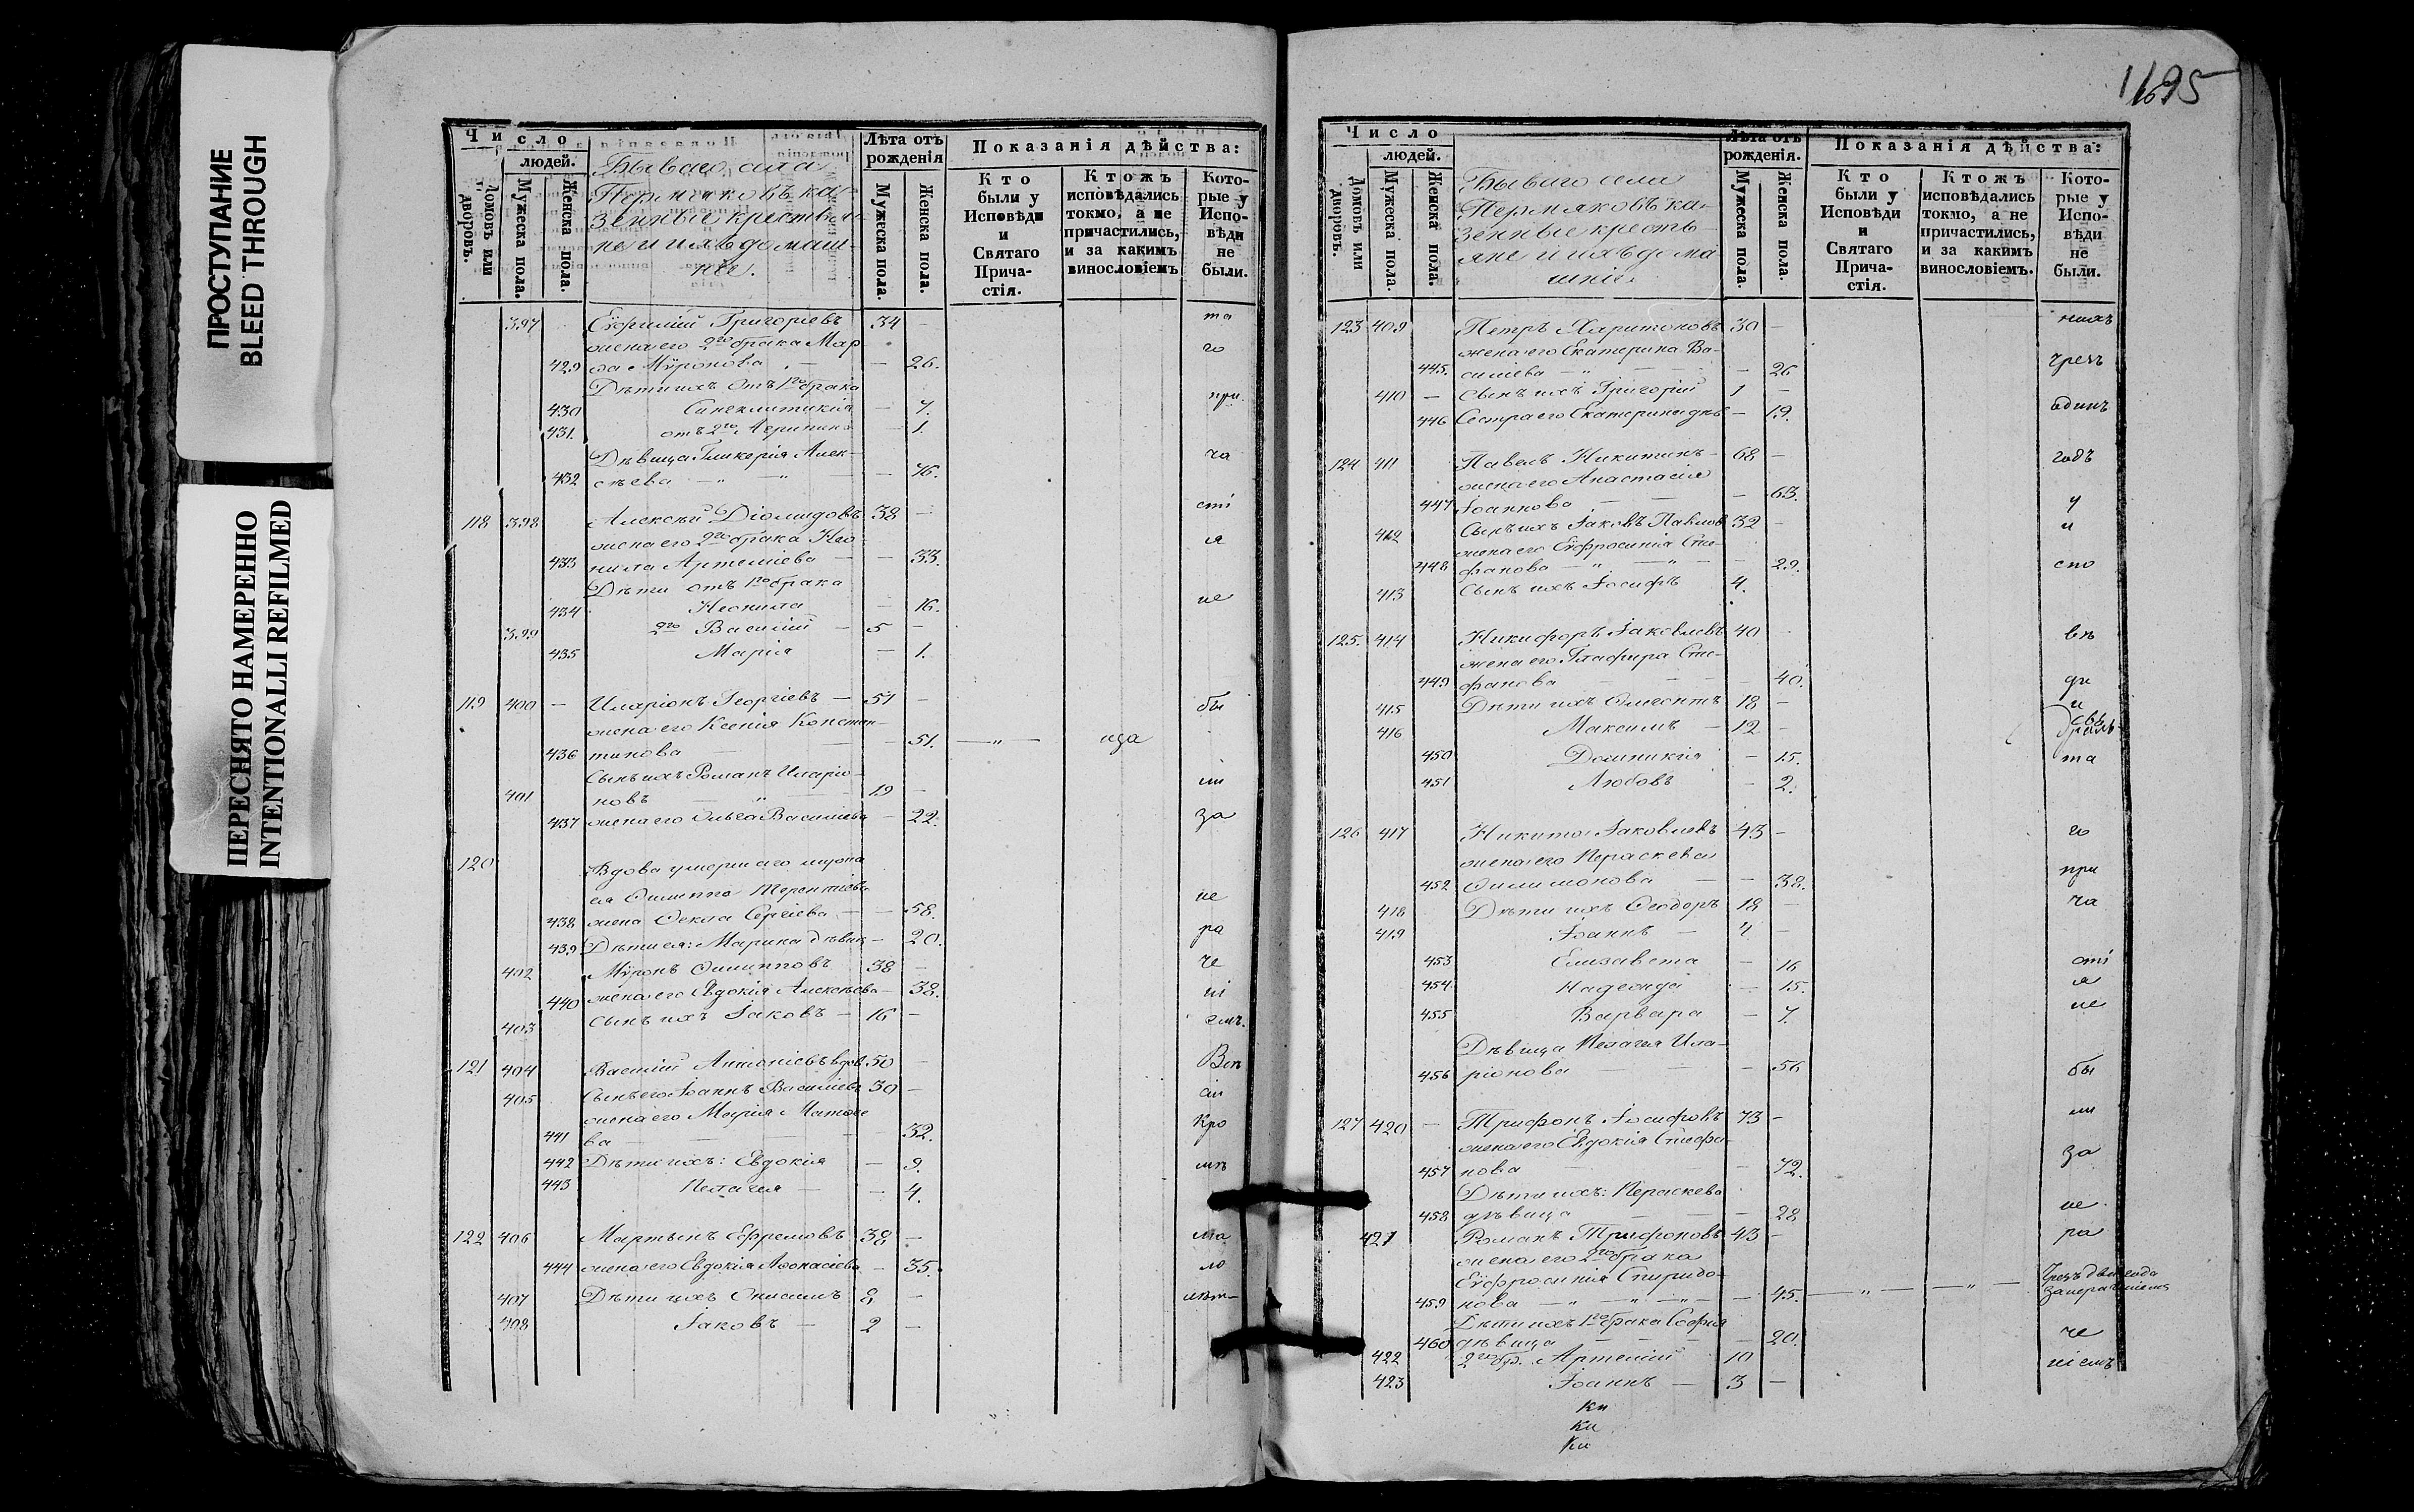 ПРОСТУПАНИЕ
BLEED THROUGH
ПЕРЕСНЯТО НАМЕРЕННО
INTENTIONALLI REFILMED
Число
людей.
Домовъ или дворовъ.
Мужеска пола.
Женска пола.
Бывшаго села
Пермяковъ ка-
зенные крестья-
не и ихъ домаш-
ніе.
Лѣта отъ рожденія
Мужеска пола.
Женска пола.
Показанія дѣйства:
Кто были у Исповѣди и Святаго Прича-стія.
Ктожъ исповѣдались токмо, а не причастились, и за какимъ винословіемъ
Кото-рые у Испо-вѣди не были.
397 Еѵфимій Григоріевъ 34 — та
жена его 2го брака Мар го
429 ѳа Мѵронова — 26.
Дѣти ихъ отъ 1го брака
430 Синклитикія — 7. при
431. отъ 2го Агрипина — 1.
Дѣвица Гликерія Алек- ча
432 сѣева — 76.
118 398 Алексѣй Діомидовъ 38 — сті
жена его 2го брака Нео я
433 нила Артеміева — 33.
Дѣти отъ 1го брака
434 Неонила — 16. не
399 2го Василій — 5 —
435 Марія — 1.
119 400 — Иларіонъ Георгіевъ — 51 — бы
жена его Ксенія Констан-
436 тинова — 51.
Сынъ ихъ Роман Иларіо- ли
401 новъ 19 —
437 жена его Ольга Васильева — 22. за
120 Вдова умершаго
438 жена Ѳекла Сергіева — 58. не
439 Дѣти ея: Марина дѣвиц — 20. ра
402 Мѵронъ Филипповъ 38 — че
440 жена его Евдокія Алексѣева — 38. ні
403 сынъ ихъ Іаковъ — 16 — емъ.
121 404 Василій Антоніевъ вдов 50 —
405 Сынъ его Іоаннъ Васильевъ 30 —
жена его Марія Матѳе Кро
441 ва — 32.
442 Дѣти ихъ: Евдокія — 9. мѣ
443 Пелагея — 4.
122 406 Мартынъ Ефремовъ 38 — ма
444 жена его Евдокія Аѳонасіева — 35. ло
407 Дѣти ихъ Онисимъ 8 — лѣт-
408 Іаковъ — 2 —
Число
людей.
Домовъ или дворовъ.
Мужеска пола.
Женска пола.
Бывшаго села
Пермяковъ ка-
зенные кресть-
яне и ихъ дома
шніе.
Лѣта отъ рожденія.
Мужеска пола.
Женска пола.
Показанія дѣйства:
Кто были у Исповѣди и Святаго Прича-стія.
Ктожъ исповѣдались токмо, а не причастились, и за какимъ винословіемъ.
Кото-рые у Испо-вѣди не были.
123 409 Петръ Харитоновъ 30 — нихъ
жена его Екатерина Ва- чрезъ
445. силіева — 26
410 — Сынъ ихъ Григорій 1 — одинъ
446 Сестра его Екатерина дѣв — 19.
124 411 Павелъ Никитинъ — 68 — годъ
жена его Анастасія
447 Іоаннова — 63. у
412 Сынъ ихъ Іаковъ Павлов 32 — и
жена его Еѵфросинія Сте-
448 фанова — 29. спо
413 Сынъ ихъ Іосифъ 4.
125. 414 Никифоръ Іаковлевъ 40 вѣ
жена его Глафира Сте-
449 фанова — 40. ди
415 Дѣти ихъ 18 — и
416 Максимъ — 12 —
450 Домникія — 15. та
451 Любовь — 2.
126 417 Никита Іаковлевъ 43 — го
жена его Параскева при
452 Филимонова — 38.
418 Дѣти ихъ Ѳеодоръ 18 — ча
419 Іоаннъ — 4 —
453 Елизавета — 16 сті
454 Надежда — 15. я
455 Варвара — 7. не
Дѣвица Пелагея Ила-
456 ріонова — 56 бы
127 420 — Трифонъ Іосифовъ 73 — ли
жена его Евдокія Стефа-
457 нова — 72. за
Дѣти ихъ: Параскева
458 дѣвица — 28 не
421 Романъ Трифоновъ 43 — ра
жена его 2го брака
Еѵфросинія Спиридо- Чрезъ два года
459 нова — 45. за нераченіемъ
Дѣти ихъ 1го брака Софія
460 дѣвица — 20. че
422 2го бр. Артемій 10 ніемъ
423 Іоаннъ — 3 —